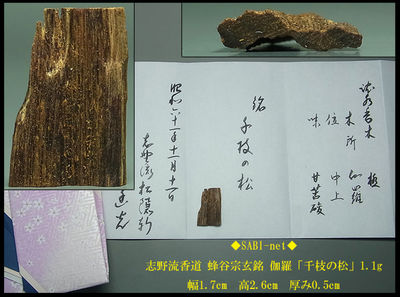 木所 伽羅
位 中上
味 甘苦酸
銘 千枝の松
昭和六十一年十一月十一日
志野流 松隠軒
◆SABI-net◆
志野流香道 蜂谷宗玄銘 伽羅「千枝の松」1.1g
幅1.7cm 高2.6cm 厚み0.5cm